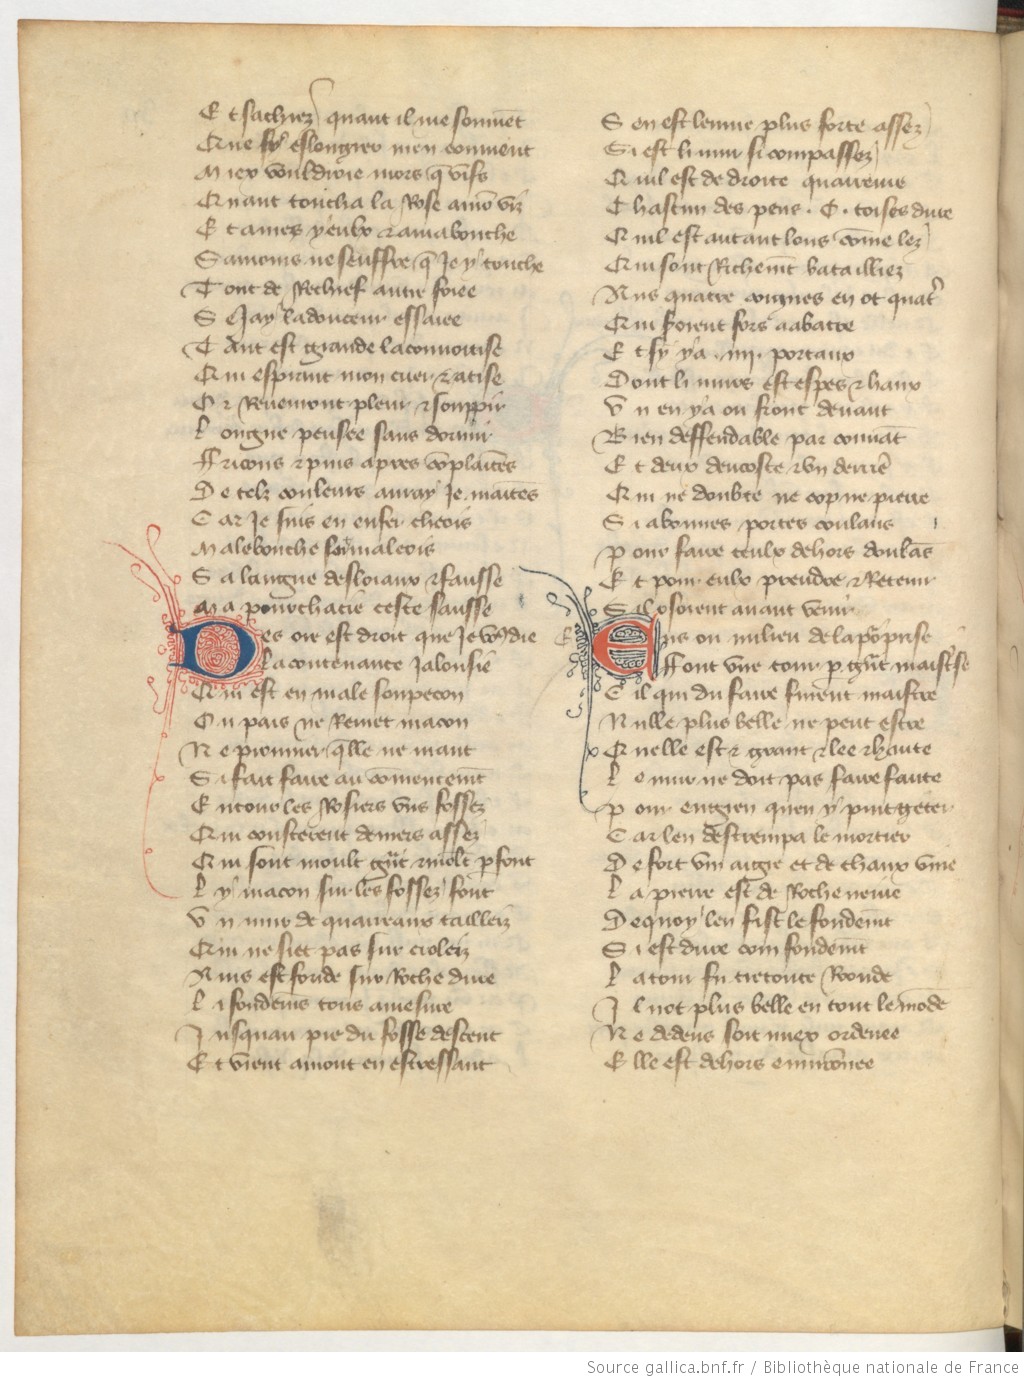 E t sachiez quant il me souuet
Q ue sy eslongier men conuient
M iex vouldroie mors q̃ vifs
Q uant toucha la Rose amo̅ vis
E t ames yeulx & a ma bouche
S amours ne seuffre q̃ Je y touche
T out de Rechief autre foiee
S e Jay la douceur essaiee
T Ant est grande la conuoitise
Q ui esprint mon cuer & atise
O r Reuemont pleur & souppir
L ongue pensee sans dormir
ffricons & puis apres co̅plaintes
D e telz couleurs auray Je maites
C ar Je suis en enfer cheois
M alebouche soit maleois
S a langue desloiaux & fausse
M a pourchacie ceste sausse
D es ore est droit que Je vo9 die
La contenance Jalousie
Q ui est en male soupecon
O u pais ne Remet macon
N e pionnier q̃lle ne mant
S i fait faire au co̅mencemt̅
E ntour les Rosiers vns fossez
Q ui cousterent deniers assez
Q ui sont moult gra̅t & molt pfont
L y macon sur les fossez font
V n mur de quarreaux tailleiz
Q ui ne siet pas sur croleiz
A uis est fonde sur Roche dure
L i fondemẽs tous a mesure
J usquau pie du fosse descent
E t vient amont en estressant
S en est leuure plus forte assez
S i est li mur si compassez
Q uil est de droite quarreure
C hascun des pens . C . toises dure
Q uil est autant lons co̅me lez
Q ui sont Richemt̅ bataillez
A us quatre coignes en ot quatr̃
Q ui soient fors a abatre
E t sy y a . iiij . portaux
D ont li murs est espes & haux
V n en y a ou front deuant
B ien deffendable par conuat̅
E t deux de coste & vn derre̅
Q ui ne doubte ne cop ne pierre
S i a bonnes portes coulans
P our faire ceulx dehors doulas̅
E t pour eulx prendre & Retenir
S il osoient auant venir
E ns ou milieu de la porprise
ffont vne tour p gra̅t maistrise
C il qui du faire furent maistre
N ulle plus belle ne peut estre
Q uelle est & grant & lee & haute
L e mur ne doit pas faire faute
P our engien quen y puit geter
C ar len destrempa le mortier
D e fort vin aigre et de chaux viue
L a pierre est de Roche neiue
D equoy len fist le fondemt̅
S i est dure com fondemt̅
L a tour fu tretoute Ronde
J l not plus belle en tout le mo̅de
N e dedens soit miex ordenee
E lle est dehors enuiro̅nee
Source gallica.bnf.fr / Bibliothèque nationale de France